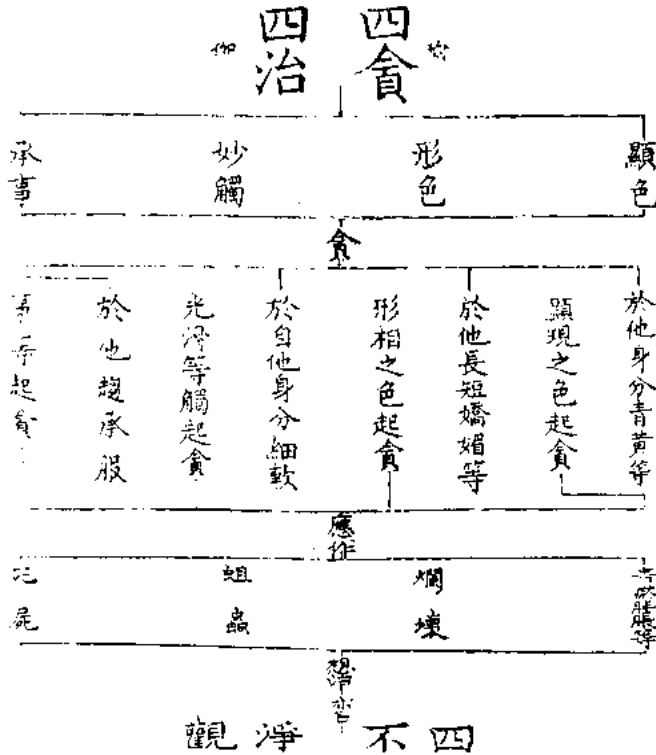 四貪
四治
顯色
形色
妙觸
承事
貪
於他身分青黃等
顯現之色起貪
於他長短嬌媚等
形相之色起貪
於自他身分細軟
光滑等觸起貪
於他趨承服
事等起貪
應作
膖脹等
爛壞
蛆蟲
屍
想
四不淨觀